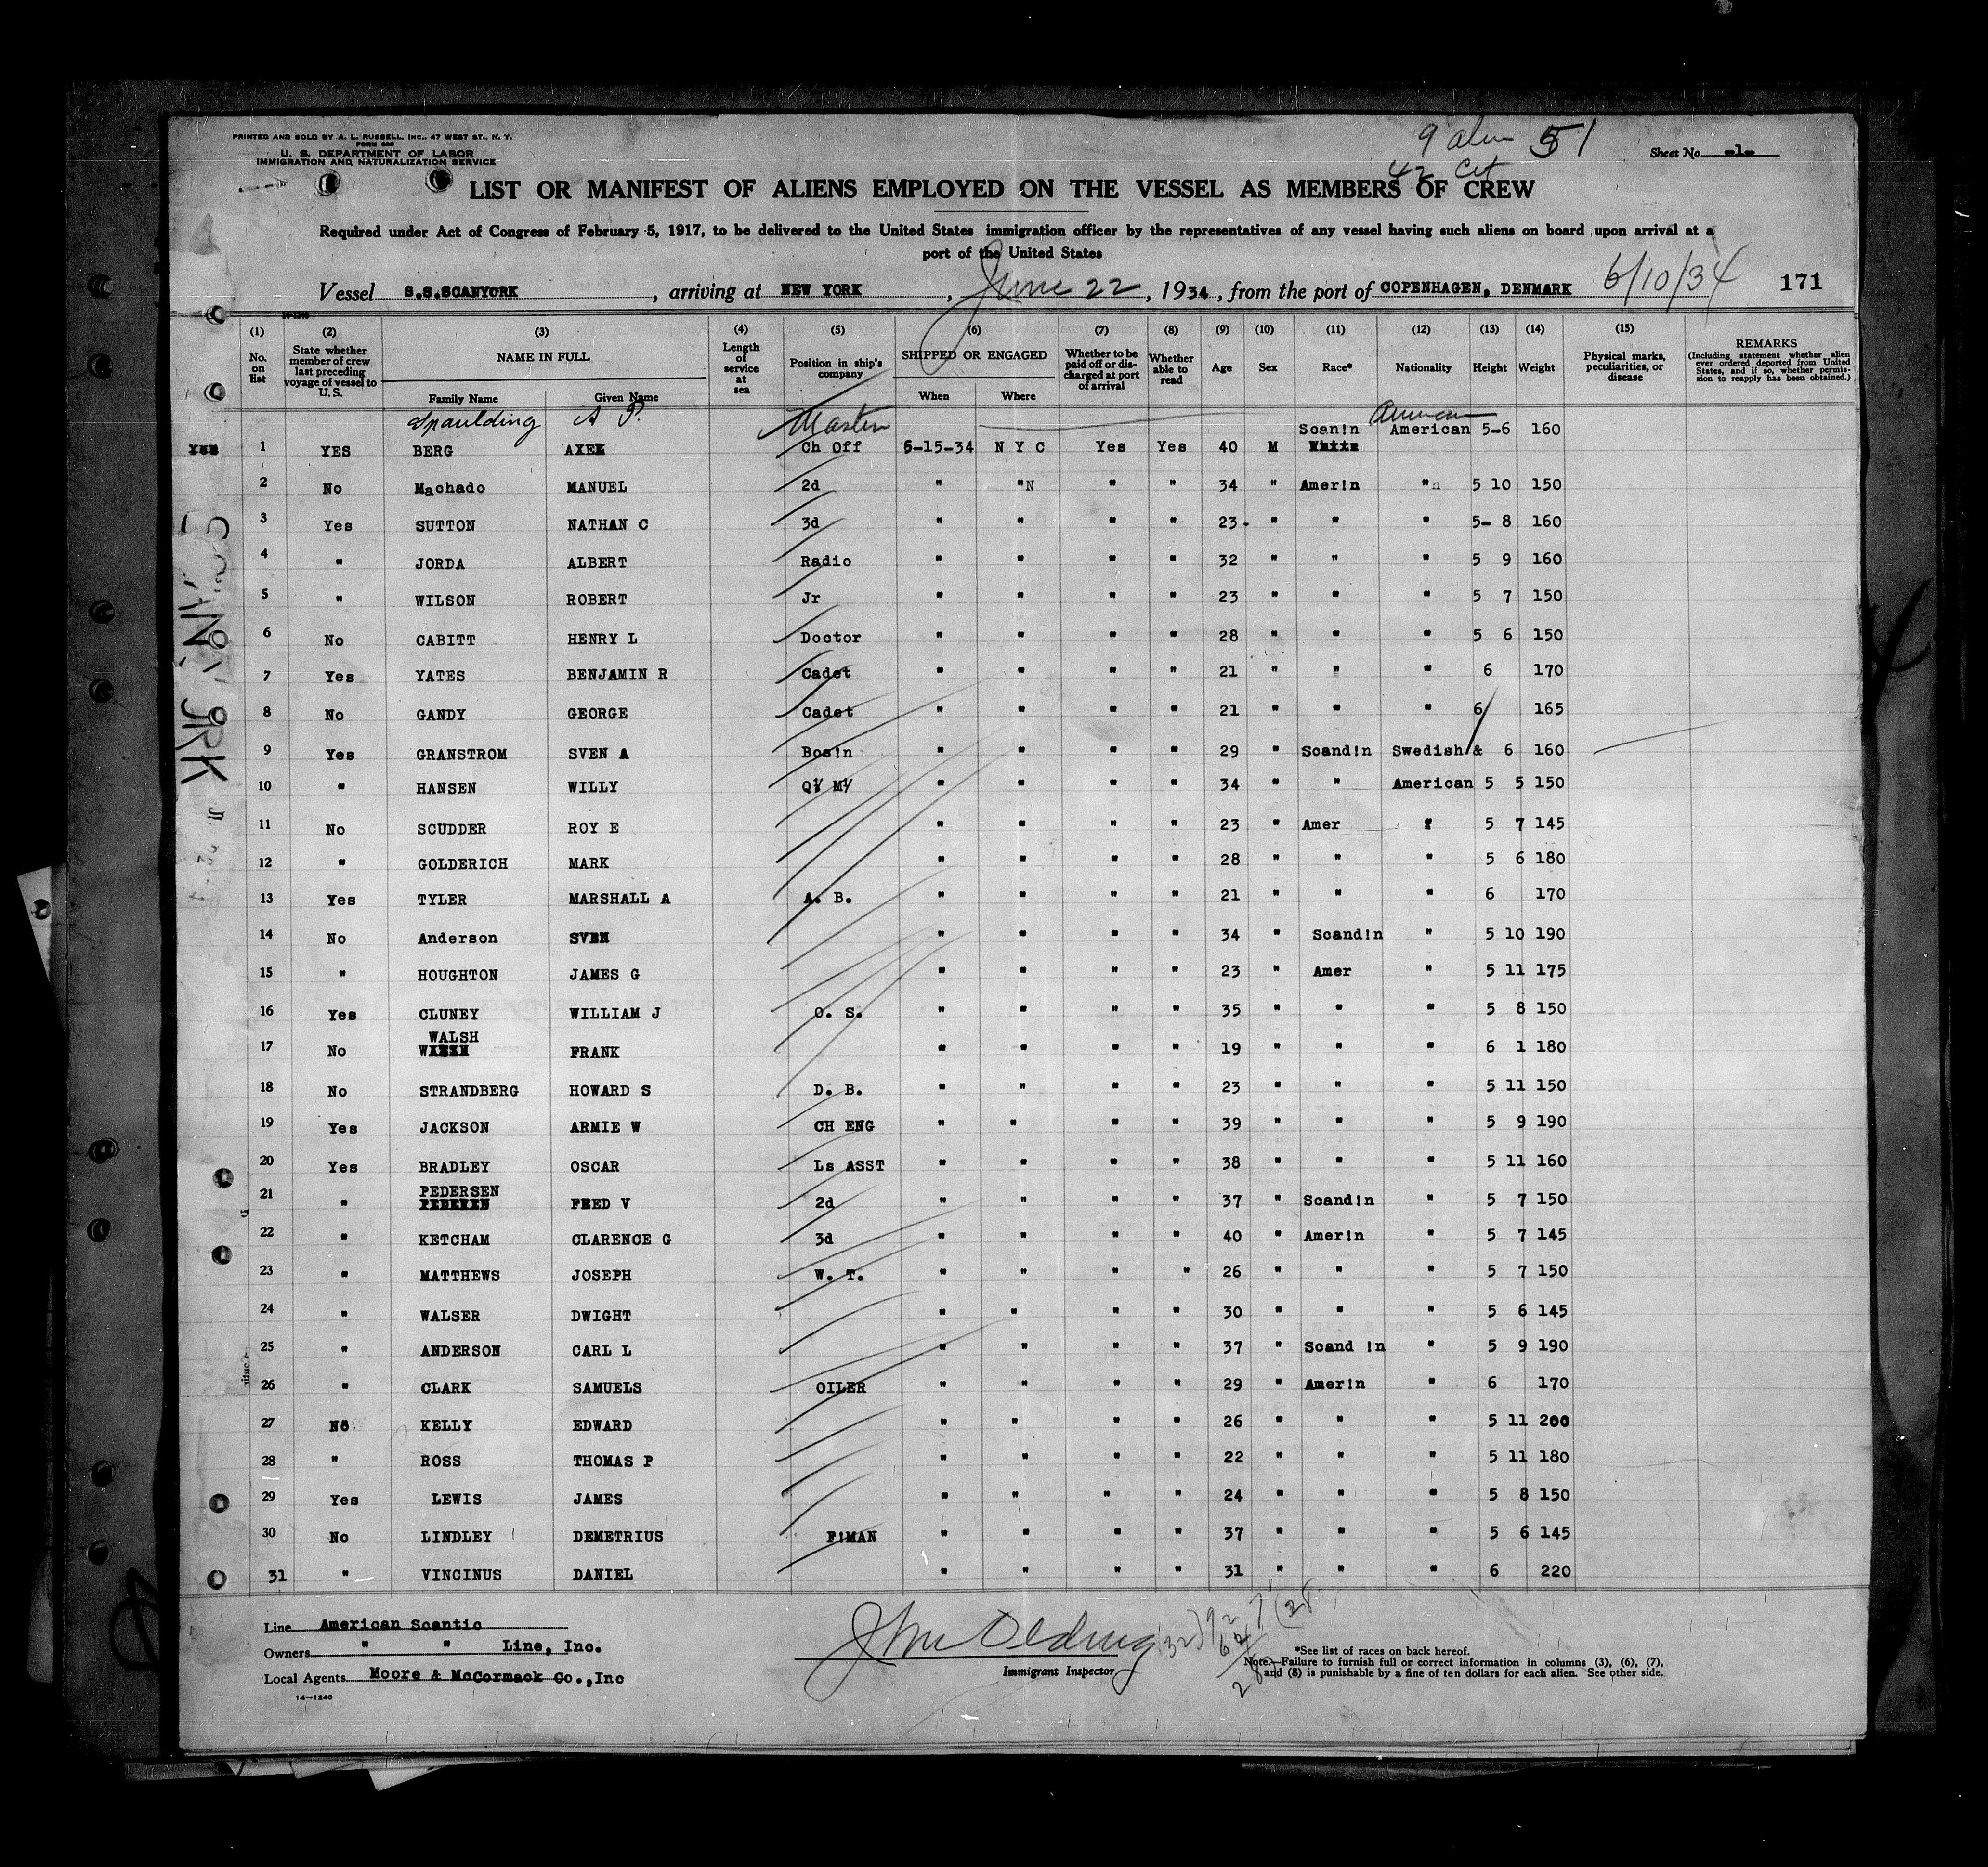 PRINTED AND SOLD BY A. L. RUSSELL, INC., 47 WEST ST., N. Y.
FORM 680
U. S. DEPARTMENT OF LABOR
IMMIGRATION AND NATURALIZATION SERVICE
9 alien 51
42 Cit
Sheet No. -1-
LIST OR MANIFEST OF ALIENS EMPLOYED ON THE VESSEL AS MEMBERS OF CREW
Required under Act of Congress of February 5, 1917, to be delivered to the United States immigration officer by the representatives of any vessel having such aliens on board upon arrival at a
port of the United States
Vessel S.S.SCANYORK, arriving at NEW YORK, June 22, 1934, from the port of COPENHAGEN, DENMARK 6/10/34 171
14-1240
(1) (2) (3) (4) (5) (6) (7) (8) (9) (10) (11) (12) (13) (14) (15)
No. on list State whether member of crew last preceding voyage of vessel to U. S. NAME IN FULL Length of service at sea Position in ship's company SHIPPED OR ENGAGED Whether to be paid off or discharged at port of arrival Whether able to read Age Sex Race* Nationality Height Weight Physical marks, peculiarities, or disease REMARKS (Including statement whether alien ever ordered deported from United States, and if so, whether permission to reapply has been obtained.)
Family Name Given Name When Where
Spaulding A P. Master American
Scan!n American 5-6 160
YES 1 YES BERG AXEL Ch Off 5-15-34 N Y C Yes Yes 40 M White
2 No Machado MANUEL 2d " "N " " 34 " Amer!n "n 5 10 150
3 Yes SUTTON NATHAN C 3d " " " " 23 " " " 5- 8 160
4 " JORDA ALBERT Radio " " " " 32 " " " 5 9 160
5 " WILSON ROBERT Jr " " " " 23 " " " 5 7 150
6 No CABITT HENRY L Doctor " " " " 28 " " " 5 6 150
7 Yes YATES BENJAMIN R Cadet " " " " 21 " " " 6 170
8 No GANDY GEORGE Cadet " " " " 21 " " " 6 165
9 Yes GRANSTROM SVEN A Bos!n " " " " 29 " Scand!n Swedish & 6 160
10 " HANSEN WILLY Q M " " " " 34 " " American 5 5 150
11 No SCUDDER ROY E " " " " 23 " Amer " 5 7 145
12 " GOLDERICH MARK " " " " 28 " " " 5 6 180
13 Yes TYLER MARSHALL A A. B. " " " " 21 " " " 6 170
14 No Anderson SVEN " " " " 34 " Scand!n " 5 10 190
15 " HOUGHTON JAMES G " " " " 23 " Amer " 5 11 175
16 Yes CLUNEY WILLIAM J O. S. " " " " 35 " " " 5 8 150
WALSH
17 No FRANK " " " " 19 " " " 6 1 180
18 No STRANDBERG HOWARD S D. B. " " " " 23 " " " 5 11 150
19 Yes JACKSON ARMIE W CH ENG " " " " 39 " " " 5 9 190
20 Yes BRADLEY OSCAR Ls ASST " " " " 38 " " " 5 11 160
PEDERSEN
21 " PEDEREN FRED V 2d " " " " 37 " Scand!n " 5 7 150
22 " KETCHAM CLARENCE G 3d " " " " 40 " Amer!n " 5 7 145
23 " MATTHEWS JOSEPH W. T. " " " " 26 " " " 5 7 150
24 " WALSER DWIGHT " " " " 30 " " " 5 6 145
25 " ANDERSON CARL L " " " " 37 " Scand !n " 5 9 190
26 " CLARK SAMUELS OILER " " " " 29 " Amer!n " 6 170
27 No KELLY EDWARD " " " " 26 " " " 5 11 200
28 " ROSS THOMAS P " " " " 22 " " " 5 11 180
29 Yes LEWIS JAMES " " " " 24 " " " 5 8 150
30 No LINDLEY DEMETRIUS F!MAN " " " " 37 " " " 5 6 145
31 " VINCINUS DANIEL " " " " 31 " " " 6 220
Line American Scantic
Owners " " Line, Inc.
Local Agents Moore & McCormack Co.,Inc
14-1240
Immigrant Inspector
*See list of races on back hereof.
Note.—Failure to furnish full or correct information in columns (3), (6), (7),
and (8) is punishable by a fine of ten dollars for each alien. See other side.